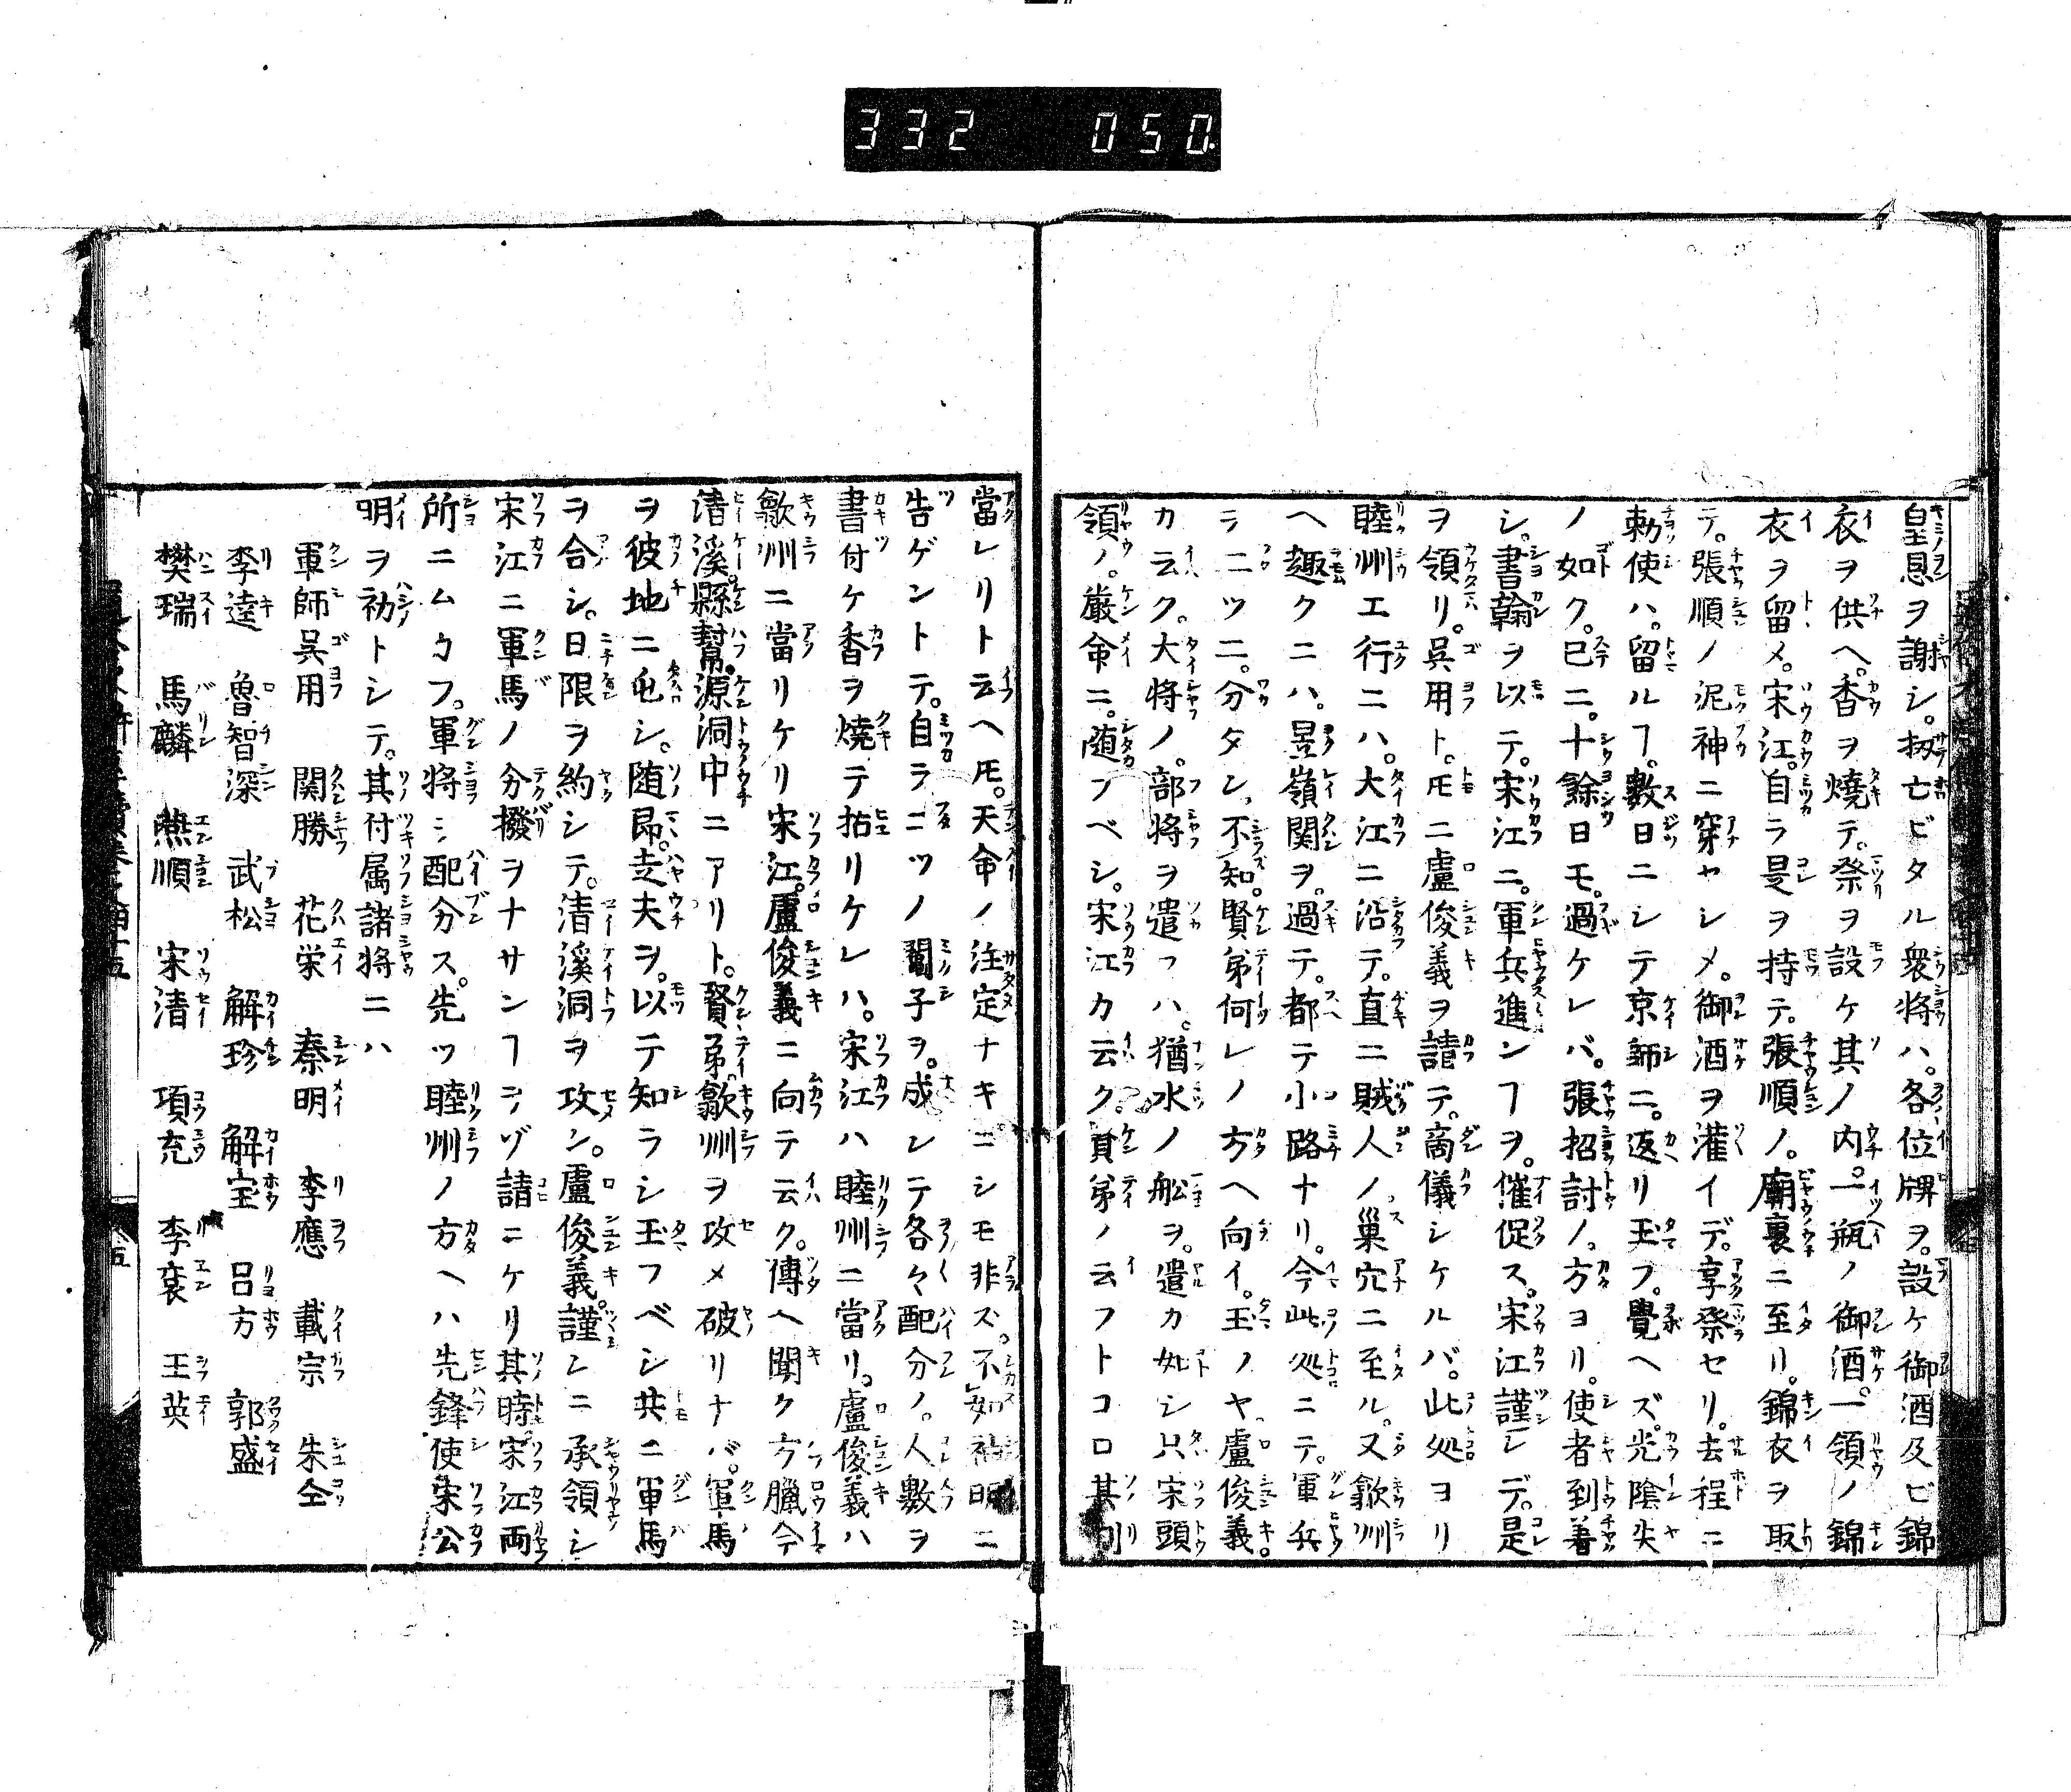 332 050
皇恩ヲ謝シ。扨亡ビタル衆將ハ。各位牌ヲ。設ケ御酒及ビ錦
衣ヲ供ヘ。香ヲ燒テ。祭ヲ設ケ其ノ内。一瓶ノ御酒。一領ノ錦
衣ヲ留メ。宋江。自ラ是ヲ持テ。張順ノ。廟裏ニ至リ。錦衣ヲ取
テ。張順ノ泥神ニ穿ヤシメ。御酒ヲ灌イデ。享祭セリ。去程ニ
勅使ハ。留ルヿ。數日ニシテ京師ニ。返リ玉フ。覺ヘズ。光陰矢
ノ如ク。已ニ。十餘日モ。過ケレバ。張招討ノ。方ヨリ。使者到着
シ。書翰ヲ以テ。宋江ニ。軍兵進ンヿヲ。催促ス。宋江謹ンデ。是
ヲ領リ。呉用ト。𪜈ニ盧俊義ヲ請テ。商儀シケルバ。此処ヨリ
睦州エ行ニハ。大江ニ沿テ。直ニ賊人ノ。巣穴ニ至ル。又歙州
ヘ趣クニハ。昱嶺関ヲ。過テ。都テ小路ナリ。今此処ニテ。軍兵
ラ二ツ二。分タン。不知。賢弟何レノ方ヘ向イ。玉ノヤ盧俊義。
カ云ク。大將ノ。部將ヲ遣フハ。猶水ノ舩ヲ。遣カ如シ只宋頭
領ノ。嚴命ニ。随フベシ。宋江カ云ク。賢弟ノ云フトコロ其利
當レリト云ヘ𪜈。天命ノ注定ナキニシモ非ズ。不如神明ニ
告ゲントテ。自ラニツノ鬮子ヲ。成シテ各々配分ノ。人數ヲ
書付ケ香ヲ燒テ拈リケレハ。宋江ハ睦州ニ當リ。盧俊義ハ
歙州ニ當リケリ宋江。盧俊義ニ向テ云ク。傳ヘ聞ク方臘今
清溪縣。幇源洞中ニアリト。賢弟。歙州ヲ攻メ破リナバ。軍馬
ヲ彼地ニ屯シ。随即。走夫ヲ。以テ知ラシ玉フベシ共ニ軍馬
ヲ合シ。日限ヲ約シテ。清溪洞ヲ攻ン。盧俊義。謹ンニ承領シ
宋江ニ軍馬ノ分撥ヲナサンヿニゾ請ニケリ其時。宋江両
所ニムカフ。軍將ニ配分ス。先ツ睦州ノ方ヘハ先鋒使宋公
明ヲ初トシテ。其付属諸將ニハ
軍師呉用 関勝 花栄 秦明 李應 戴宗 朱仝
李逵 魯智深 武松 解珍 解宝 呂方 郭盛
樊瑞 馬麟 燕順 宋清 項充 李袞 王英